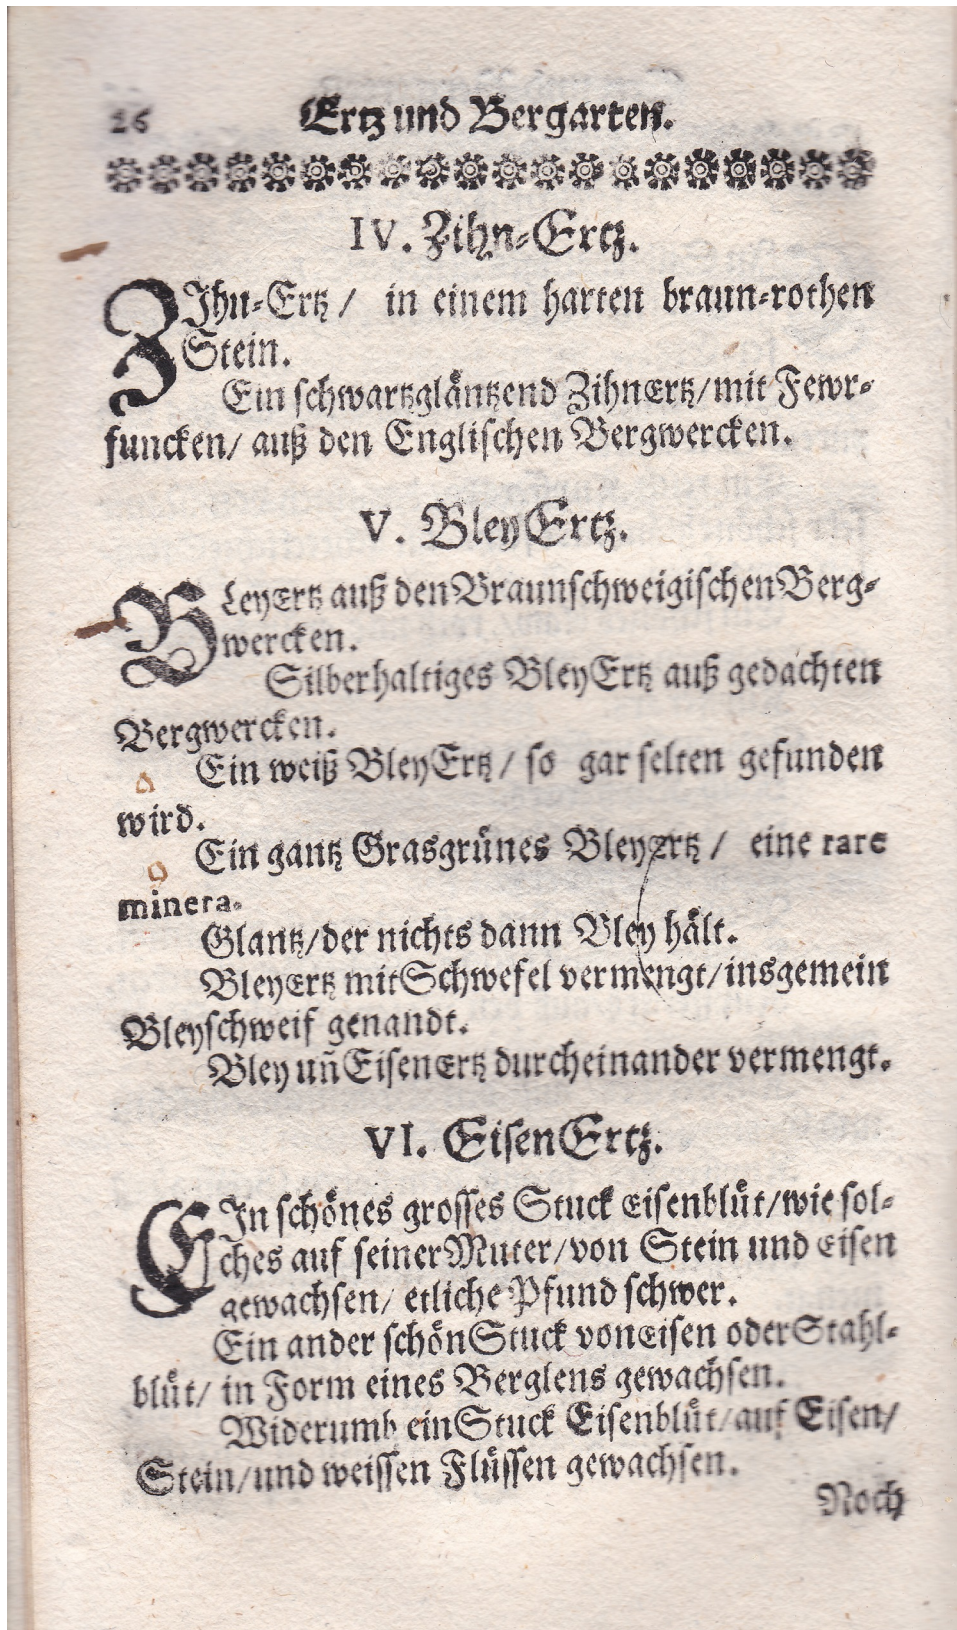 26 Ertz und Bergarten.
IV. Zihn-Ertz.
ZIhn-Ertz / in einem harten braun-rothen
Stein.
Ein schwartzgläntzend ZihnErtz/mit Fewr-
funcken/ auß den Englischen Bergwercken.
V. BleyErtz.
BLeyErtz auß den Braunschweigischen Berg-
wercken.
Silberhaltiges BleyErtz auß gedachten
Bergwercken.
Ein weiß BleyErtz / so gar selten gefunden
wird.
Ein gantz Grasgrünes BleyErtz / eine rare
minera.
Glantz/der nichts dann Bley hält.
BleyErtz mit Schwefel vermengt/insgemein
Bleyschweif genandt.
Bley uñ EisenErtz durcheinander vermengt.
VI. EisenErtz.
EIn schönes grosses Stuck Eisenblüt/wie sol-
ches auf seiner Muter/von Stein und Eisen
gewachsen/ etliche Pfund schwer.
Ein ander schön Stuck von Eisen oder Stahl-
blüt/ in Form eines Berglens gewachsen.
Widerumb ein Stuck Eisenblüt/auf Eisen/
Stein/und weissen Flüssen gewachsen.
Noch